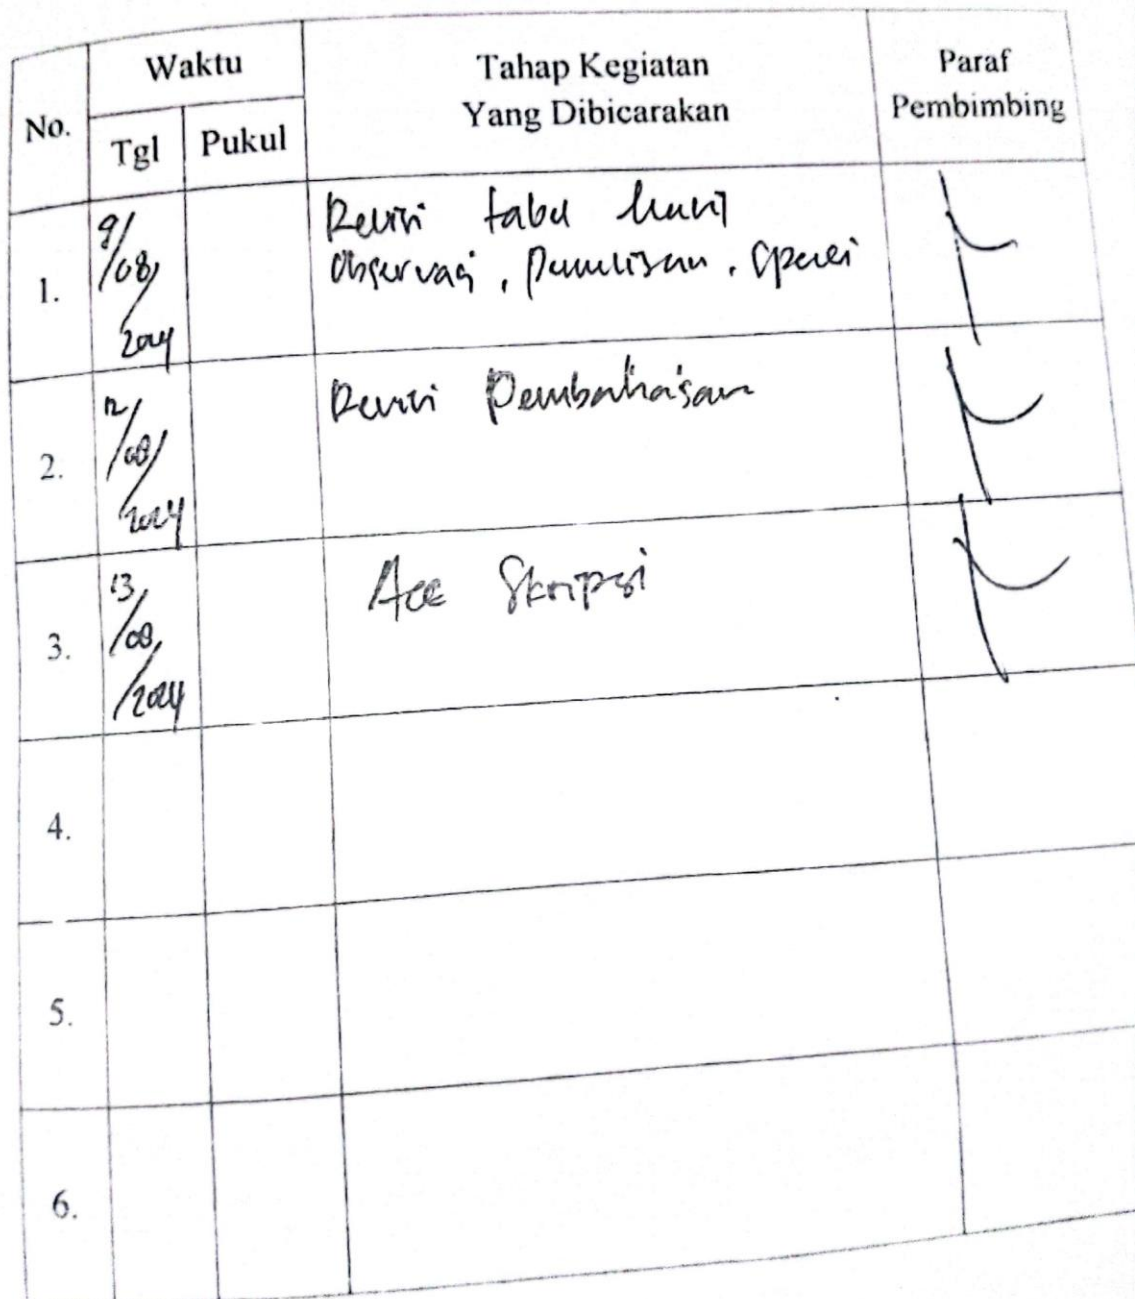 No.
Waktu
Tgl
Pukul
Tahap Kegiatan
Yang Dibicarakan
Paraf
Pembimbing
1.
9/
/08/
2024
Revisi tabel hasil
observasi, penulisan,
2.
12/
/08/
2024
Revisi Pembahasan
3.
13/
/08/
/2024
Acc Skripsi
4.
5.
6.